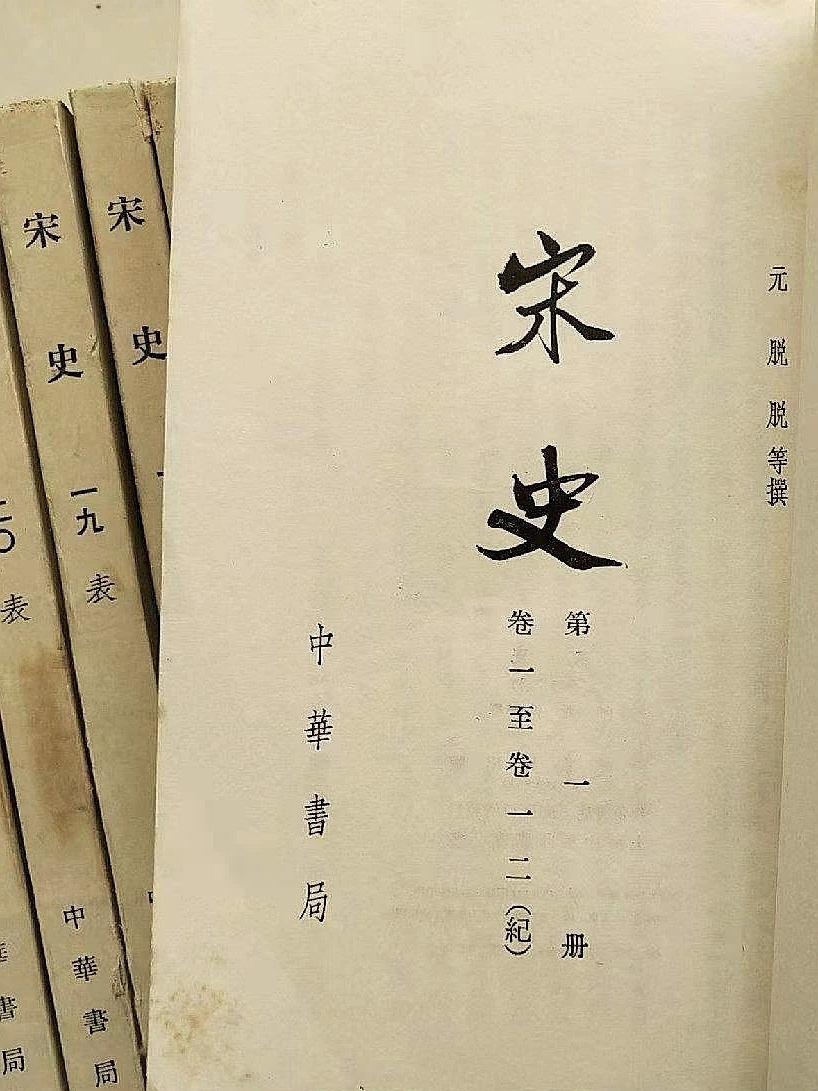 元 脱 脱 等 撰
宋史
第一册
卷一至卷一二（紀）
中華書局
宋史
宋史 一九 表 中華書局
二〇 表 華書局